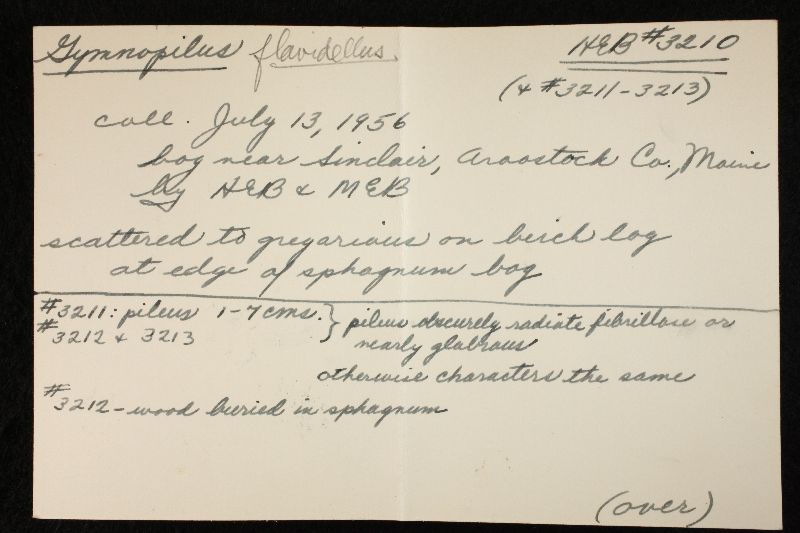 Gymnopilus flavidellus. HEB #3210
(& #3211-3213)
coll. July 13, 1956
bog near Sinclair, Aroostock Co., Maine
by HEB & MEB
scattered to gregarious on birch log
at edge of sphagnum bog
#3211: pileus 1-7 cms. } pileus obscurely radiate fibrillose or
#3212 & 3213 nearly glabrous
otherwise characters the same
#3212 - wood buried in sphagnum
(over)